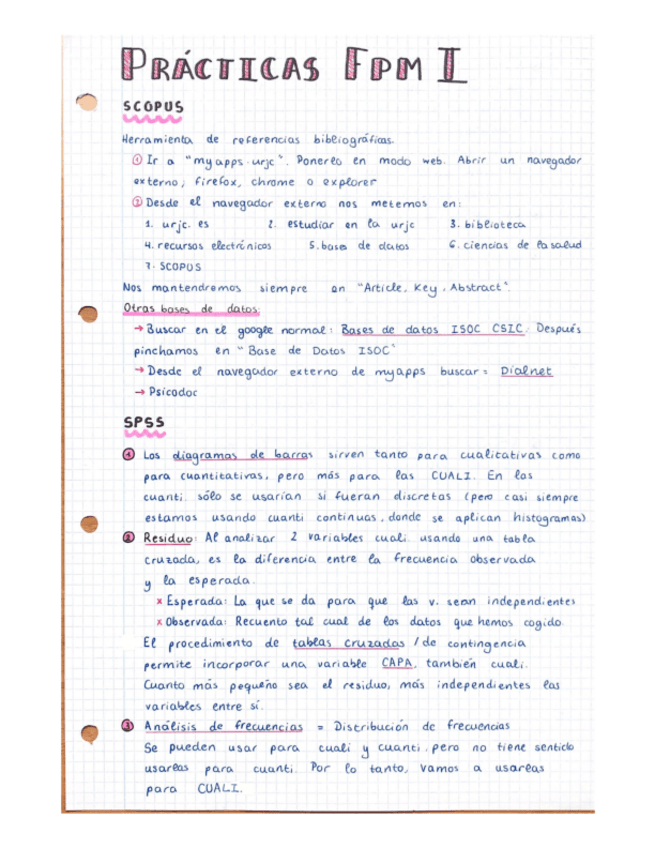 PRÁCTICAS FPM I
SCOPUS
Herramienta de referencias bibliográficas.
① Ir a "myapps.urjc". Ponerlo en modo web. Abrir un navegador
externo; firefox, chrome o explorer
② Desde el navegador externo nos metemos en:
1. urjc.es 2. estudiar en la urjc 3. biblioteca
4. recursos electrónicos 5. bases de datos 6. ciencias de la salud
7. SCOPUS
Nos mantendremos siempre en "Article, Key, Abstract".
Otras bases de datos:
→ Buscar en el google normal: Bases de datos ISOC CSIC. Después
pinchamos en "Base de Datos ISOC"
→ Desde el navegador externo de myapps buscar: Dialnet
→ Psicodoc
SPSS
① Los diagramas de barras sirven tanto para cualitativas como
para cuantitativas, pero más para las CUALI. En las
cuanti. sólo se usarían si fueran discretas (pero casi siempre
estamos usando cuanti continuas, donde se aplican histogramas)
② Residuo: Al analizar 2 variables cuali. usando una tabla
cruzada, es la diferencia entre la frecuencia observada
y la esperada.
x Esperada: La que se da para que las v. sean independientes
x Observada: Recuento tal cual de los datos que hemos cogido.
El procedimiento de tablas cruzadas / de contingencia
permite incorporar una variable CAPA, también cuali.
Cuanto más pequeño sea el residuo, más independientes las
variables entre sí.
③ Análisis de frecuencias = Distribución de frecuencias
Se pueden usar para cuali y cuanti, pero no tiene sentido
usarlas para cuanti. Por lo tanto, vamos a usarlas
para CUALI.